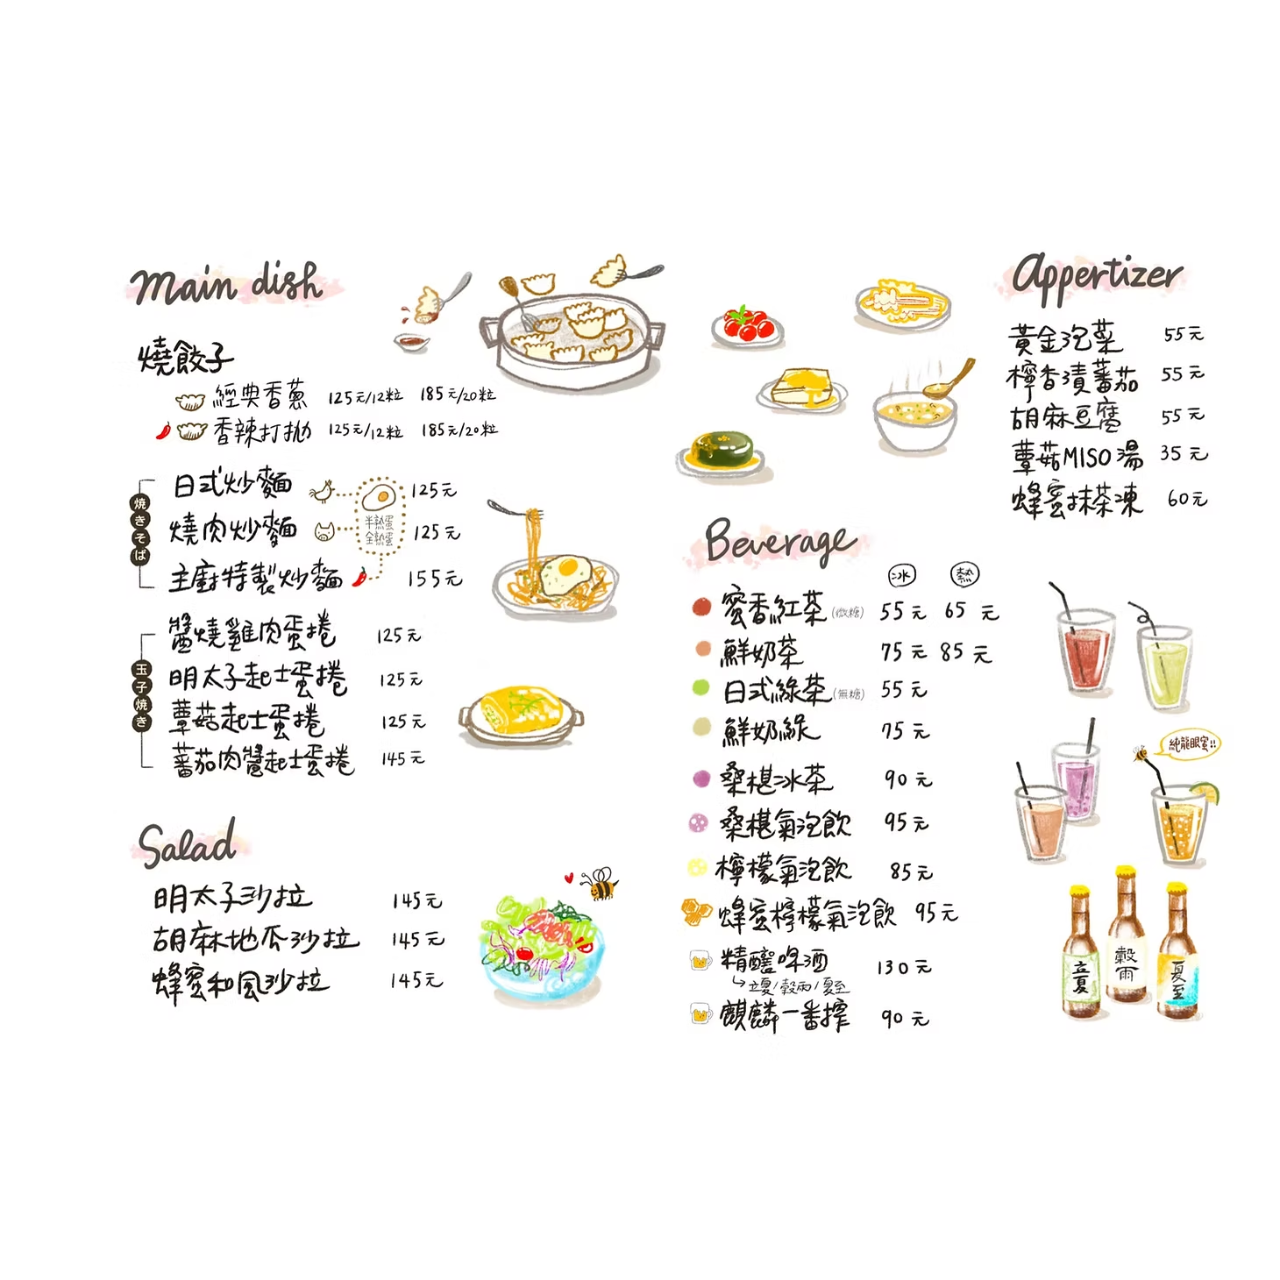 Main dish
燒餃子
經典香蔥 125元/12粒 185元/20粒
香辣打拋 125元/12粒 185元/20粒
焼きそば
日式炒麵 125元
燒肉炒麵 125元
半熟蛋
全熟蛋
主廚特製炒麵 155元
玉子焼き
醬燒雞肉蛋捲 125元
明太子起士蛋捲 125元
蕈菇起士蛋捲 125元
蕃茄肉醬起士蛋捲 145元
Salad
明太子沙拉 145元
胡麻地瓜沙拉 145元
蜂蜜和風沙拉 145元
Appertizer
黃金泡菜 55元
檸香漬蕃茄 55元
胡麻豆腐 55元
蕈菇MISO湯 35元
蜂蜜抹茶凍 60元
Beverage
冰 熱
蜜香紅茶(微糖) 55元 65元
鮮奶茶 75元 85元
日式綠茶(無糖) 55元
鮮奶綠 75元
桑椹冰茶 90元
桑椹氣泡飲 95元
檸檬氣泡飲 85元
蜂蜜檸檬氣泡飲 95元
精釀啤酒 130元
立夏/穀雨/夏至
麒麟一番搾 90元
純龍眼蜜!!
立夏
穀雨
夏至